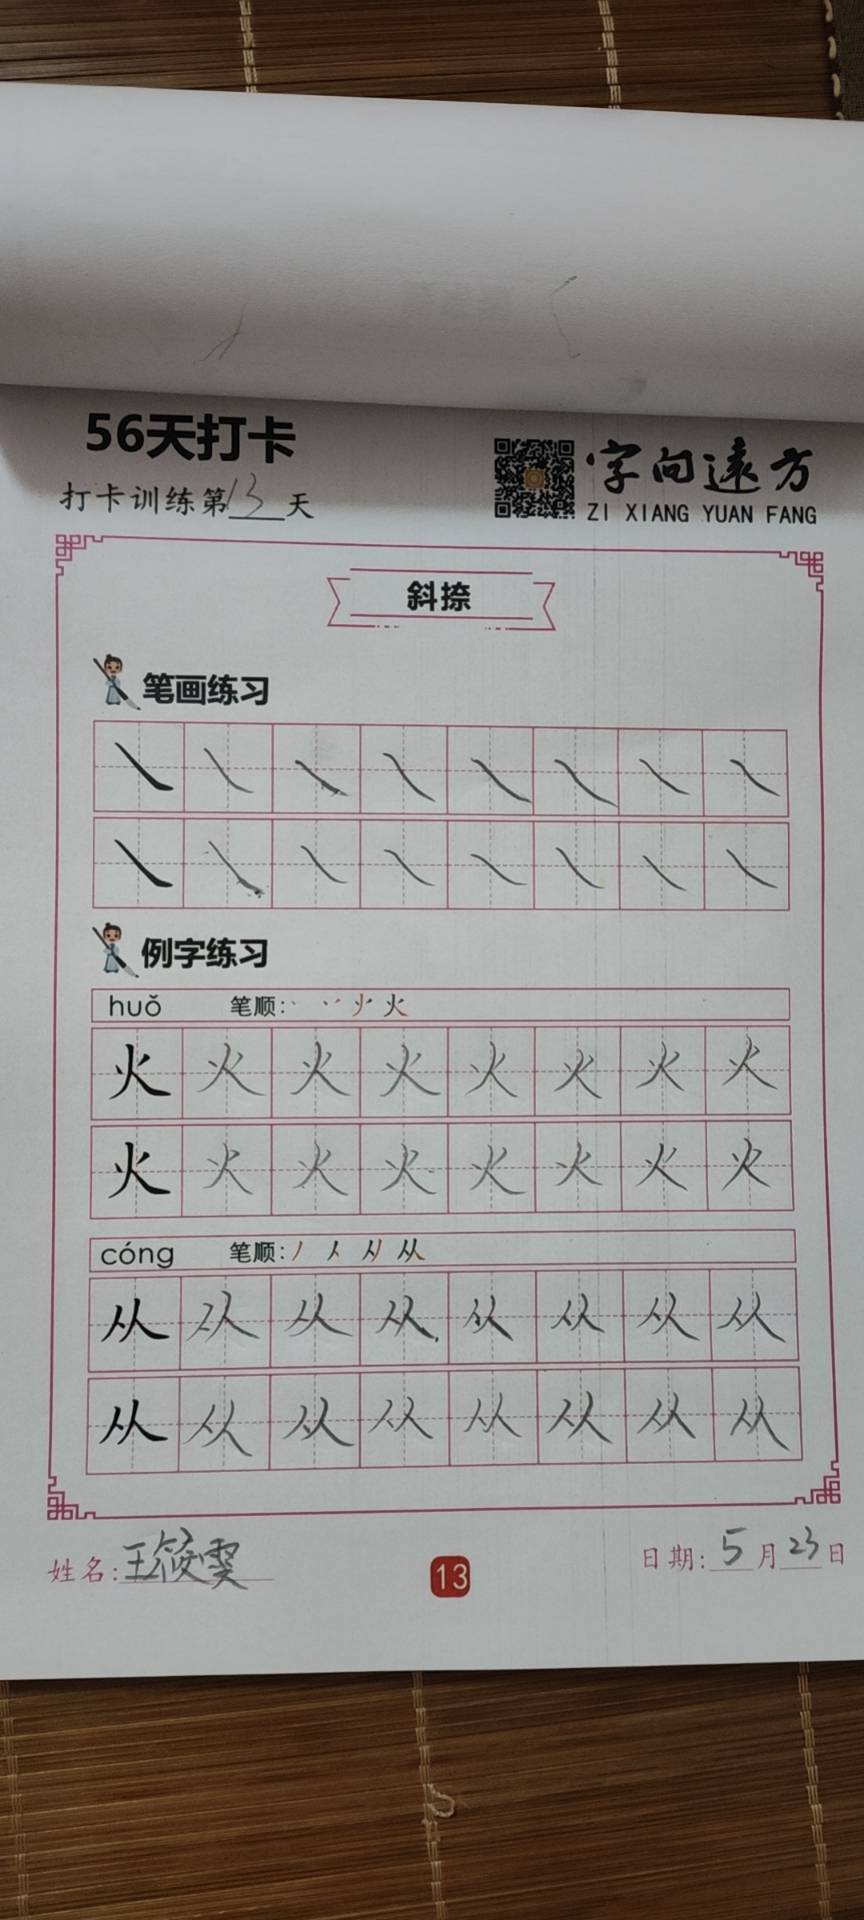 56天打卡
打卡训练第13天
字向遠方
ZI XIANG YUAN FANG
斜捺
笔画练习
㇏ ㇏ ㇏ ㇏ ㇏ ㇏ ㇏ ㇏
㇏ ㇏ ㇏ ㇏ ㇏ ㇏ ㇏ ㇏
例字练习
huǒ 笔顺: 火
火 火 火 火 火 火 火 火
火 火 火 火 火 火 火 火
cóng 笔顺: 丿 从
从 从 从 从 从 从 从 从
从 从 从 从 从 从 从 从
姓名:王筱雯
13
日期:5月23日